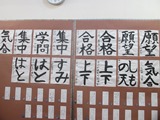 願望
願望
合格
合格
集中
学問
集中
上下
上下
すみ
はと
はと
気合